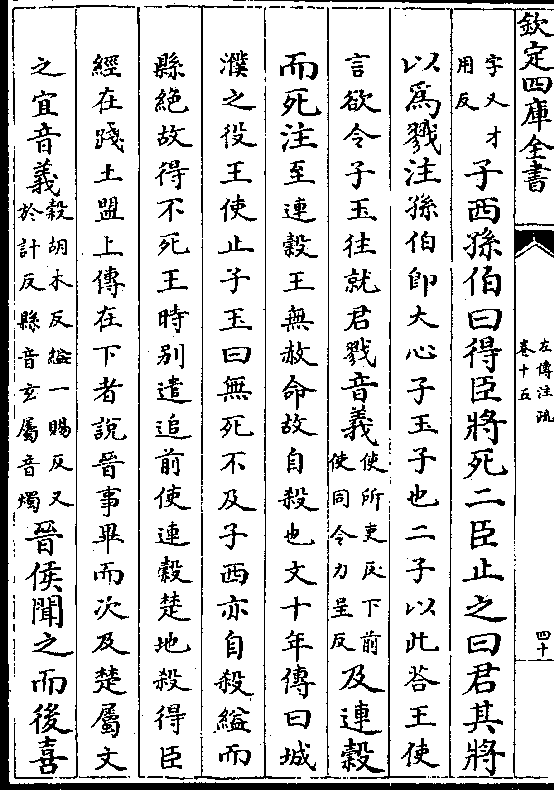 欽定四庫全書
左傳注疏
卷十五
四十
字又才
用反
子西孫伯曰得臣將死二臣止之曰君其將
以為戮注孫伯即大心子玉子也二子以此荅王使
言欲令子玉往就君戮音義使所吏反下前
使同令力呈反
及連穀
而死注至連穀王無赦命故自殺也文十年傳曰城
濮之役王使止子玉曰無死不及子西亦自殺縊而
縣絕故得不死王時別遣追前使連穀楚地殺得臣
經在踐土盟上傳在下者說晉事畢而次及楚屬文
之宜音義穀胡木反縊一賜反又
於計反縣音玄屬音燭
晉侯聞之而後喜